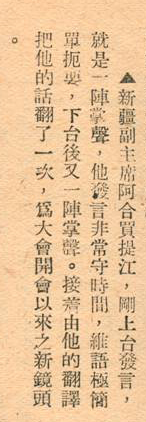 ▲新疆副主席阿合買提江，剛上台發言，
就是一陣掌聲，他發言非常守時間，維語極簡
單扼要，下台後又一陣掌聲。接着由他的翻譯
把他的話翻了一次，爲大會開會以來之新鏡頭
。